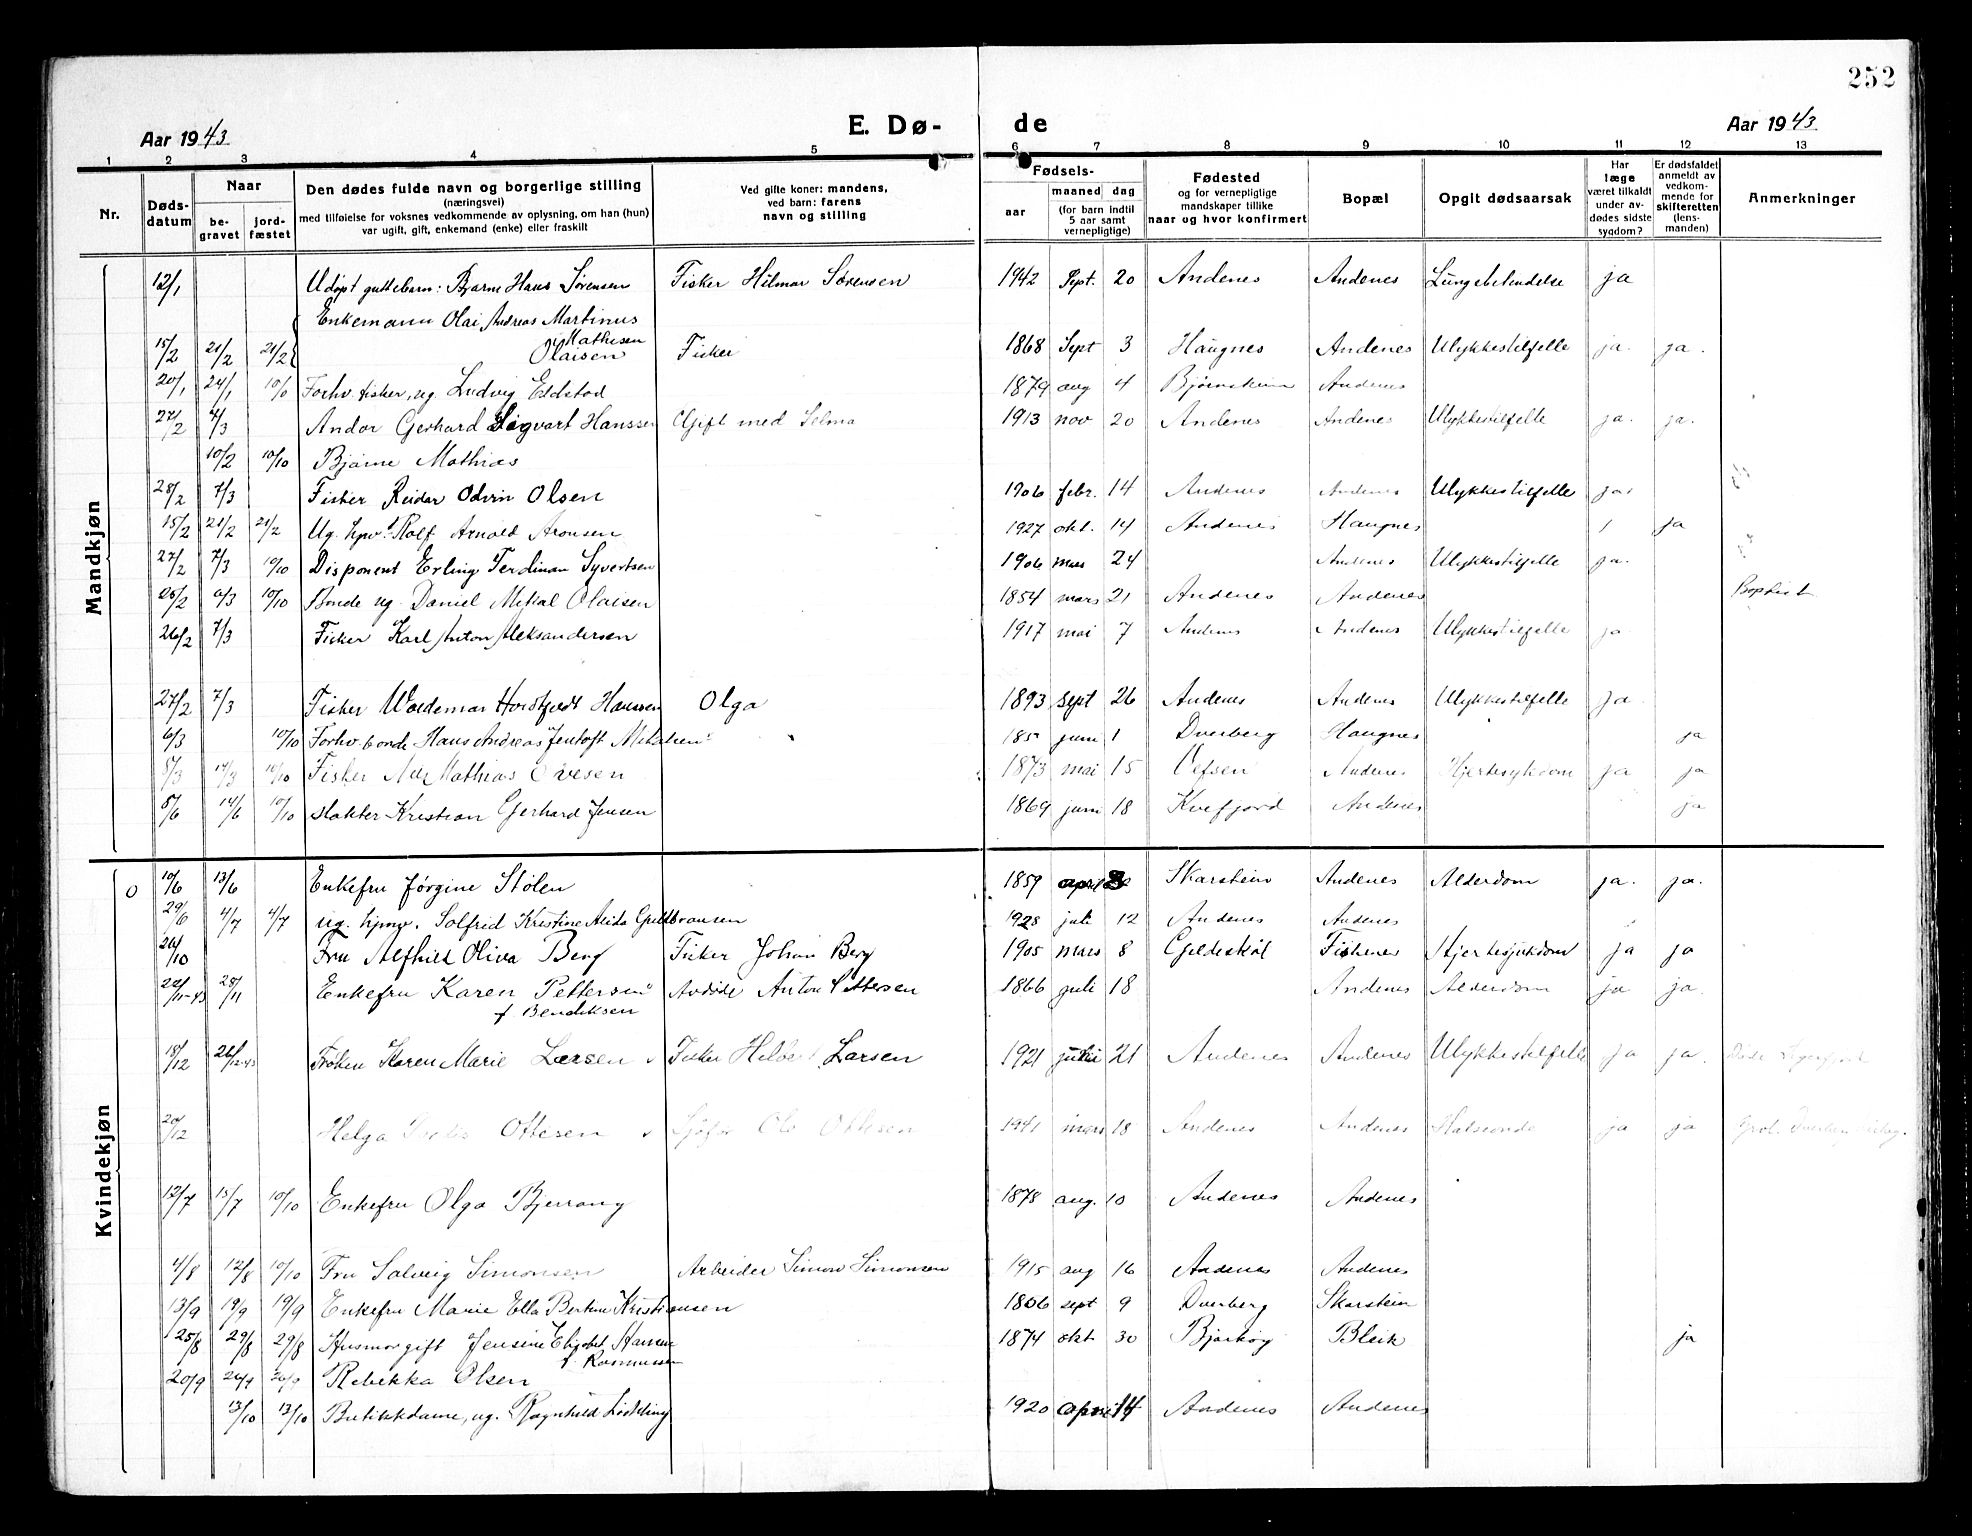 252
Aar 1943 E. Dø- de Aar 1943
1 2 3 4 5 6 7 8 9 10 11 12 13
Nr. Dødsdatum Naar begravet jordfæstet Den dødes fulde navn og borgerlige stilling (næringsvei) med tilføielse for voksnes vedkommende av oplysning, om han (hun) var ugift, gift, enkemand (enke) eller fraskilt Ved gifte koner: mandens, ved barn: farens navn og stilling Fødsels- aar maaned dag (for barn indtil 5 aar samt vernepligtige) Fødested og for vernepligtige mandskaper tillike naar og hvor konfirmert Bopæl Opgit dødsaarsak Har læge været tilkaldt under avdødes sidste sygdom? Er dødsfaldet anmeldt av vedkommende for skifteretten (lensmanden) Anmerkninger
Mandkjøn
12/1 Udøpt guttebarn: Bjarne Hans Sørensen Fisker Hilmar Sørensen 1942 Sept. 20 Andenes Andenes Lungebetendelse ja
Enkemann Olai Andreas Martinus
Mathisen
15/2 21/2 21/2 Olaisen Fisker 1868 Sept 3 Haugnes Andenes Ulykkestilfelle ja. ja.
20/1 24/1 10/10 Forhv. fisker, ug. Ludvig Eldstad 1879 aug 4 Andenes
27/2 7/3 Andor Gerhard Sigvart Hanssen Gift med Selma 1913 nov 20 Andenes Andenes Ulykkestilfelle ja. ja.
10/2 10/10 Bjarne Mathias
28/2 7/3 Fisker Reidar Odvin Olsen 1906 febr. 14 Andenes Andenes Ulykkestilfelle ja.
15/2 21/2 21/2 Ug. hpv. Rolf Arnold Aronsen 1927 okt. 14 Andenes Haugnes ja
27/2 7/3 10/10 Disponent Erling Ferdinan Syvertsen 1906 mars 24 Andenes Ulykkestilfelle ja.
10/10 Bonde ug. Daniel Mikal Olaisen 1854 mars 21 Andenes Andenes Baptist
26/2 7/3 Fisker Karl Anton Aleksandersen 1917 mai 7 Andenes Andenes Ulykkestilfelle ja
27/2 7/3 Fisker Waldemar Hanssen Olga 1893 sept 26 Andenes Andenes Ulykkestilfelle ja.
6/3 10/10 Forhv. bonde Hans Andreas Jentoft Mikalsen juni 1 Dverberg Haugnes ja
5/3 14/3 10/10 Fisker Mathias Olvesen 1873 mai 15 Vefsen Andenes Hjertesykdom ja ja
5/6 14/6 10/10 slakter Kristian Gerhard Jensen 1869 juni 18 Kvefjord Andenes ja
Kvindekjøn
0 10/6 13/6 Enkefru Jørgine Stølen 1859 april Skarstein Andenes Alderdom ja. ja.
29/6 4/7 4/7 ug. hpv. Solfrid Kristine Alida Guldbransen 1928 juli 12 Andenes Andenes
26/10 Fru Alfhild Oliva Berg Fisker Johan Berg 1905 mars 8 Gildeskål Fiskenes Hjertesykdom ja ja
22/11-43 28/11 Enkefru Karen Pettersen Avdøde Anton Pettersen 1866 juli 18 Andenes Alderdom ja ja.
f Bendiksen
18/12 26/12-43 Frøken Karen Marie Larsen Fisker Larsen 1921 juli 21 Andenes Andenes Ulykkestilfelle ja ja.
20/12 Helga Ottesen Sjåfør Ole Ottesen 1941 mars 18 Andenes Andenes Halsonde ja ja
12/7 15/7 10/10 Enkefru Olga Bjerrang 1878 aug. 10 Andenes Andenes
4/8 12/8 10/10 Fru Solveig Simonsen Arbeider Simon Simonsen 1915 aug 16 Andenes Andenes
13/9 19/9 19/9 Enkefru Marie Ella Bertine Kristiansen sept 9 Dverberg Skarstein
25/8 29/8 29/8 Husmor gift Jensine Elisabet Hansen 1874 okt 30 Bjarkøy Bleik ja
f. Rasmussen
20/9 26/9 26/9 Rebekka Olsen
13/10 13/10 Butikkdame, ug. Ragnhild 1920 april 14 Andenes Andenes